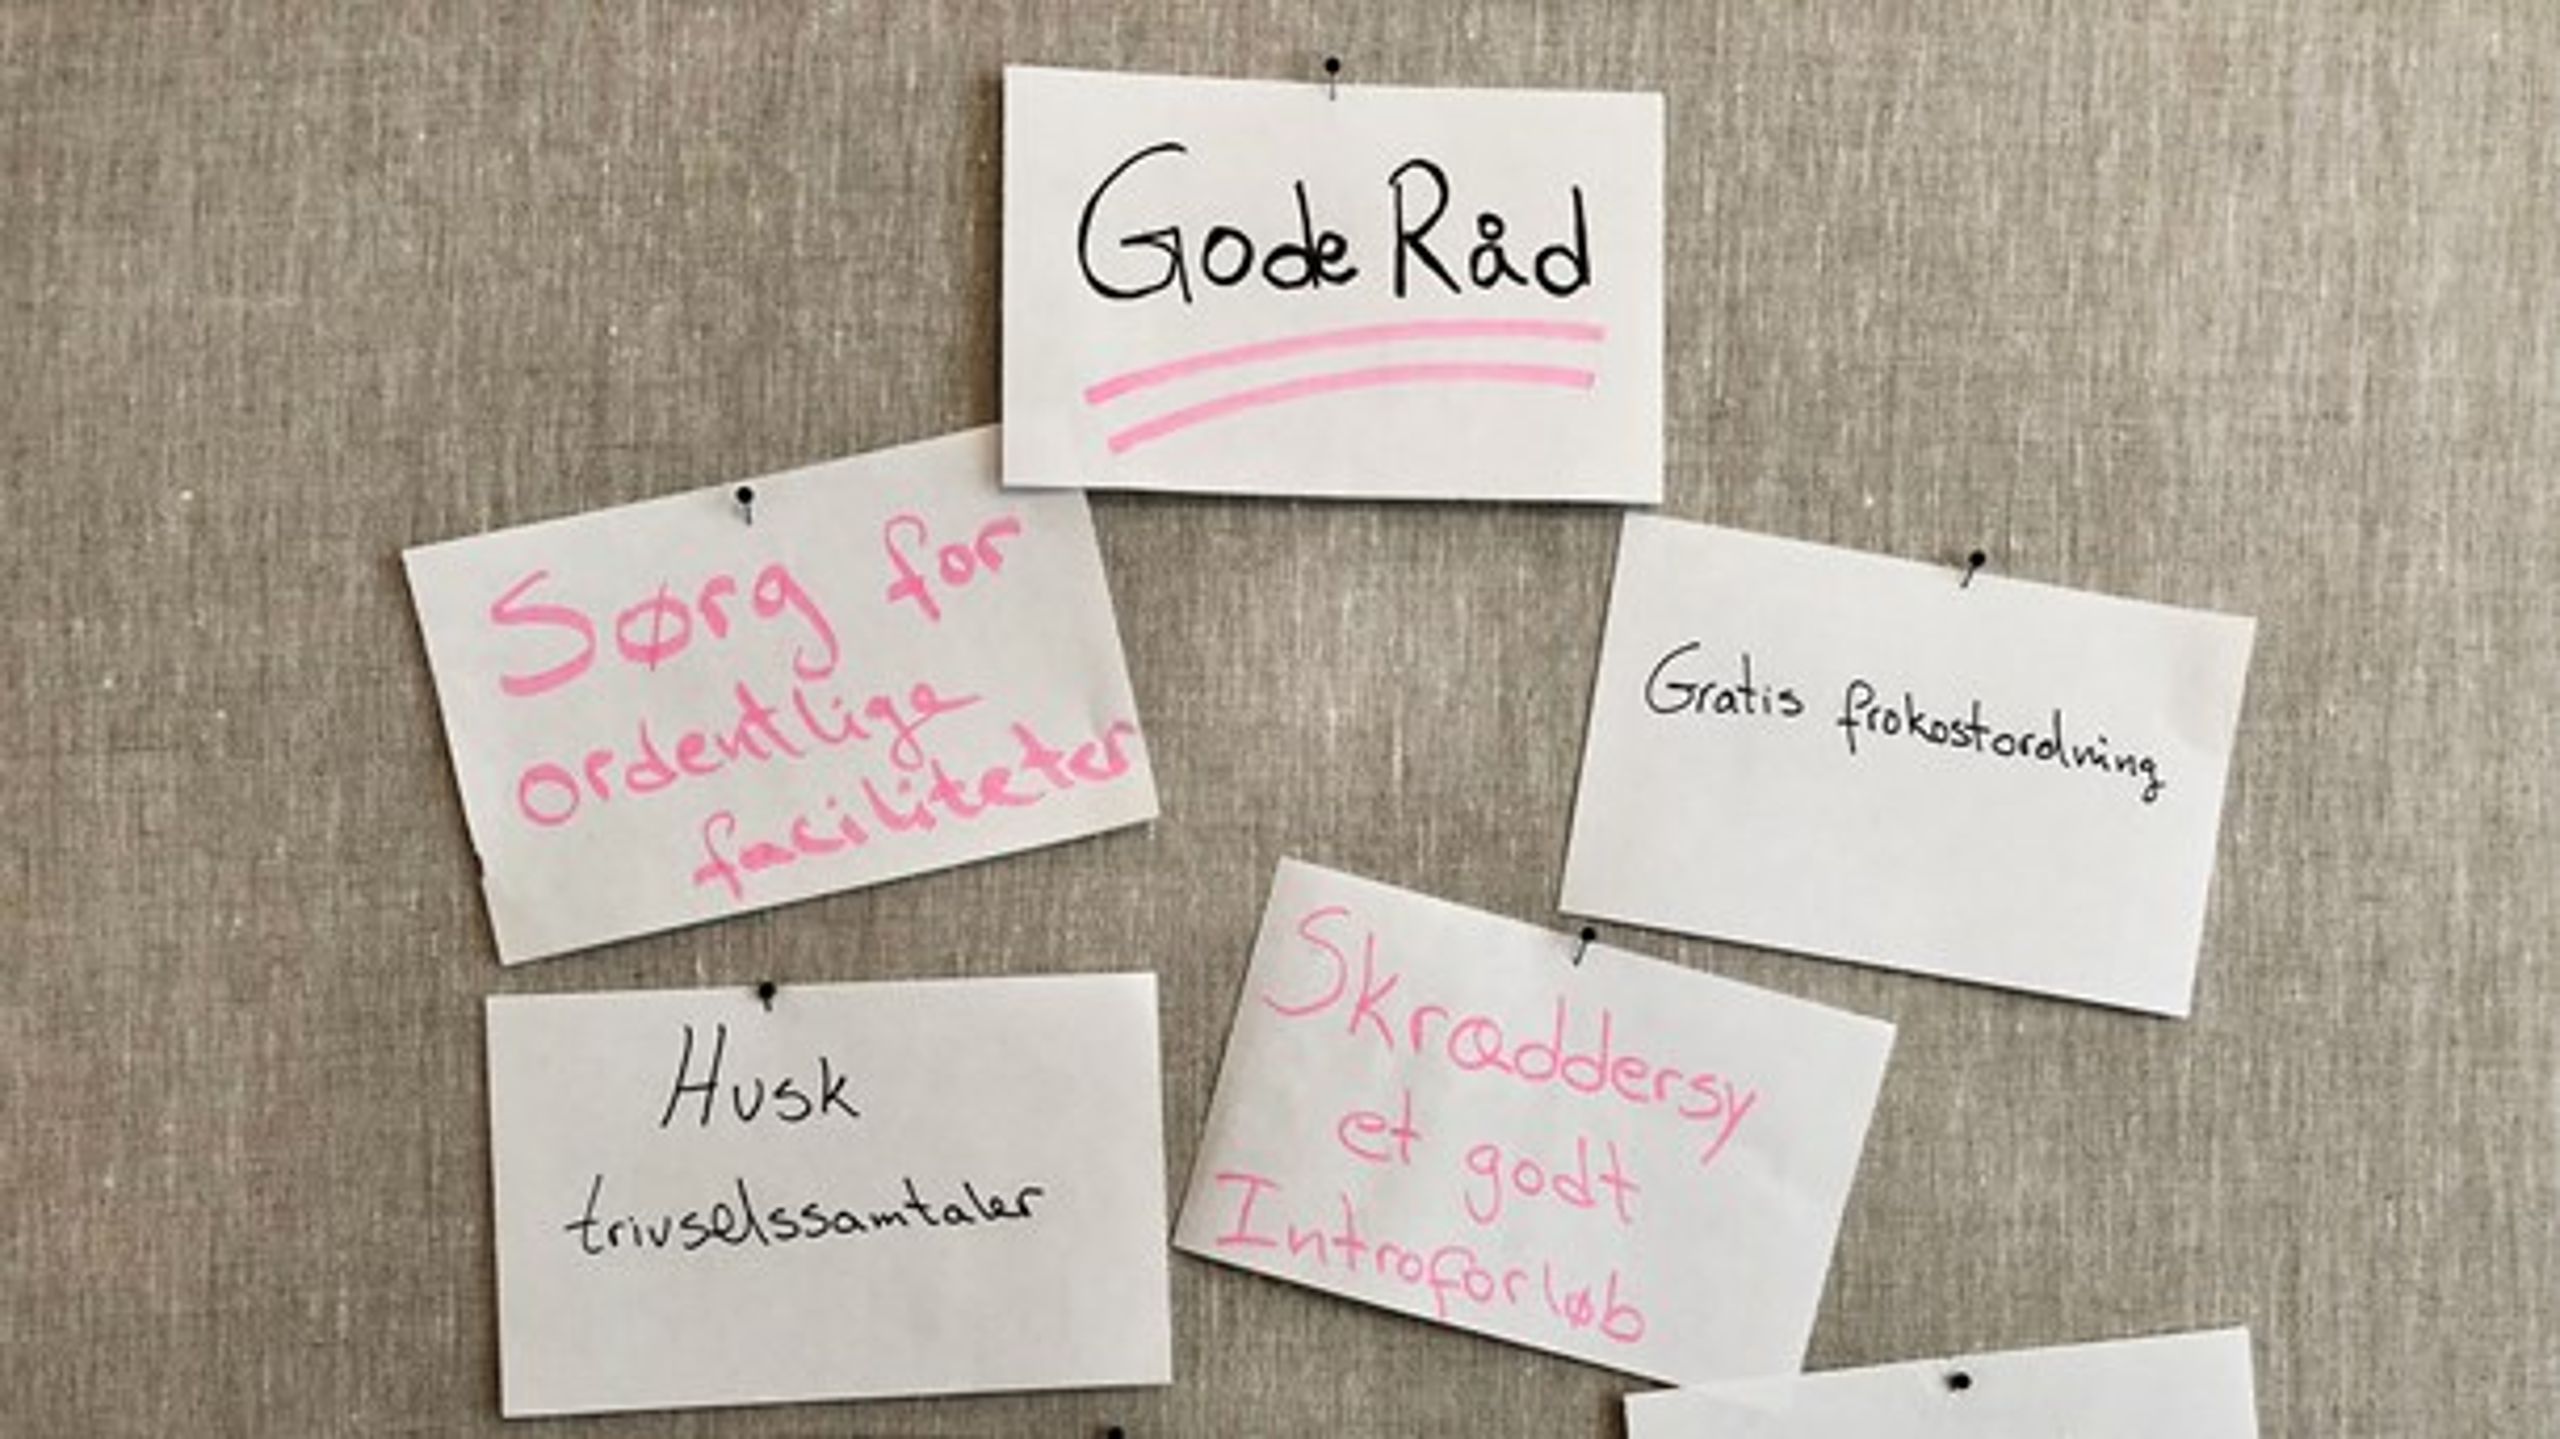 Gode Råd
Sørg for
ordentlige
faciliteter
Gratis frokostordning
Husk
trivselssamtaler
Skræddersy
et godt
Introforløb